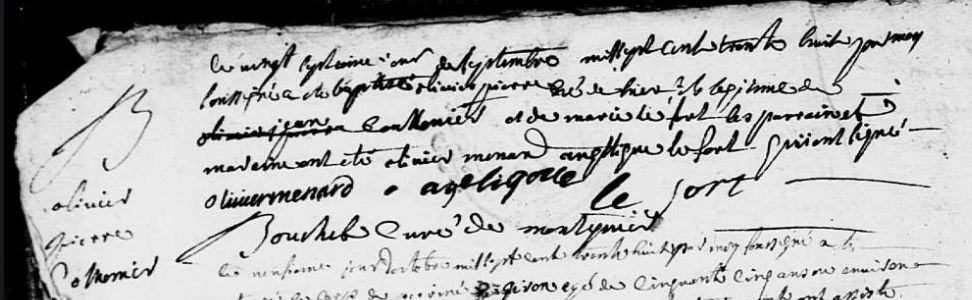 B
olivier
pierre
le vingt sixieme jour de septembre mil sept cent trente huit par moy
soussigné a eté baptisé olivier pierre né de hier fils legitime de
et de marie le fort les parrain et
maraine ont eté olivier menard angelique le fort qui ont signé
olivier menard agelique le fort
Bouchet Curé de
jour d'octobre mil sept cent trente huit par moy soussigné a eté
le corps de agé de Cinquante Cinq ans ou environ
ont assisté